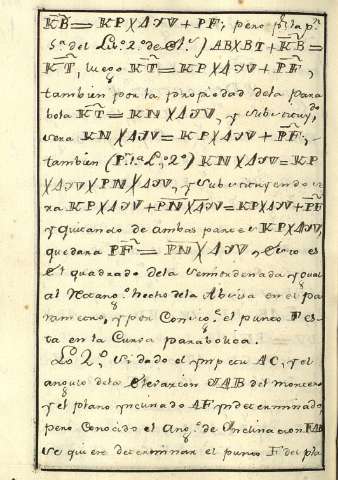 K͞B = KP X AIV + PF; pero p.r la p.n
5.ª del Lib.º 2.º de Cl.º) AB X BT + K͞B =
K͞T, luego K͞T = KP X AIV + P͞F,
tambien por la propiedad dela para
bola K͞T = KN X AIV, y substituy.do
sera KN X AIV = KP X AIV + P͞F;
tambien (P. 1.ª L.º 2.º) KN X AIV = KP
X AIV X PN X AIV, y substituyendo se
ra KP X AIV + PN X AIV = KP X AIV + P͞F
y quitando de ambas partes KP X AIV,
quedara P͞F = PN X AIV, Esto es
El quadrado dela semiordenada ygual
al Rectang.º hecho dela Abcisa en el pa
rametro, y por Consig.e el punto F es
ta en la Curva parabolica.
Lo 2.º si dado el ympetu AC, y el
angulo dela Elevacion IAB del mortero
y el plano ynclinado AF yndeterminado
pero Conocido el Ang.º de Inclinacion FAB
se quiere determinar el punto F del pla